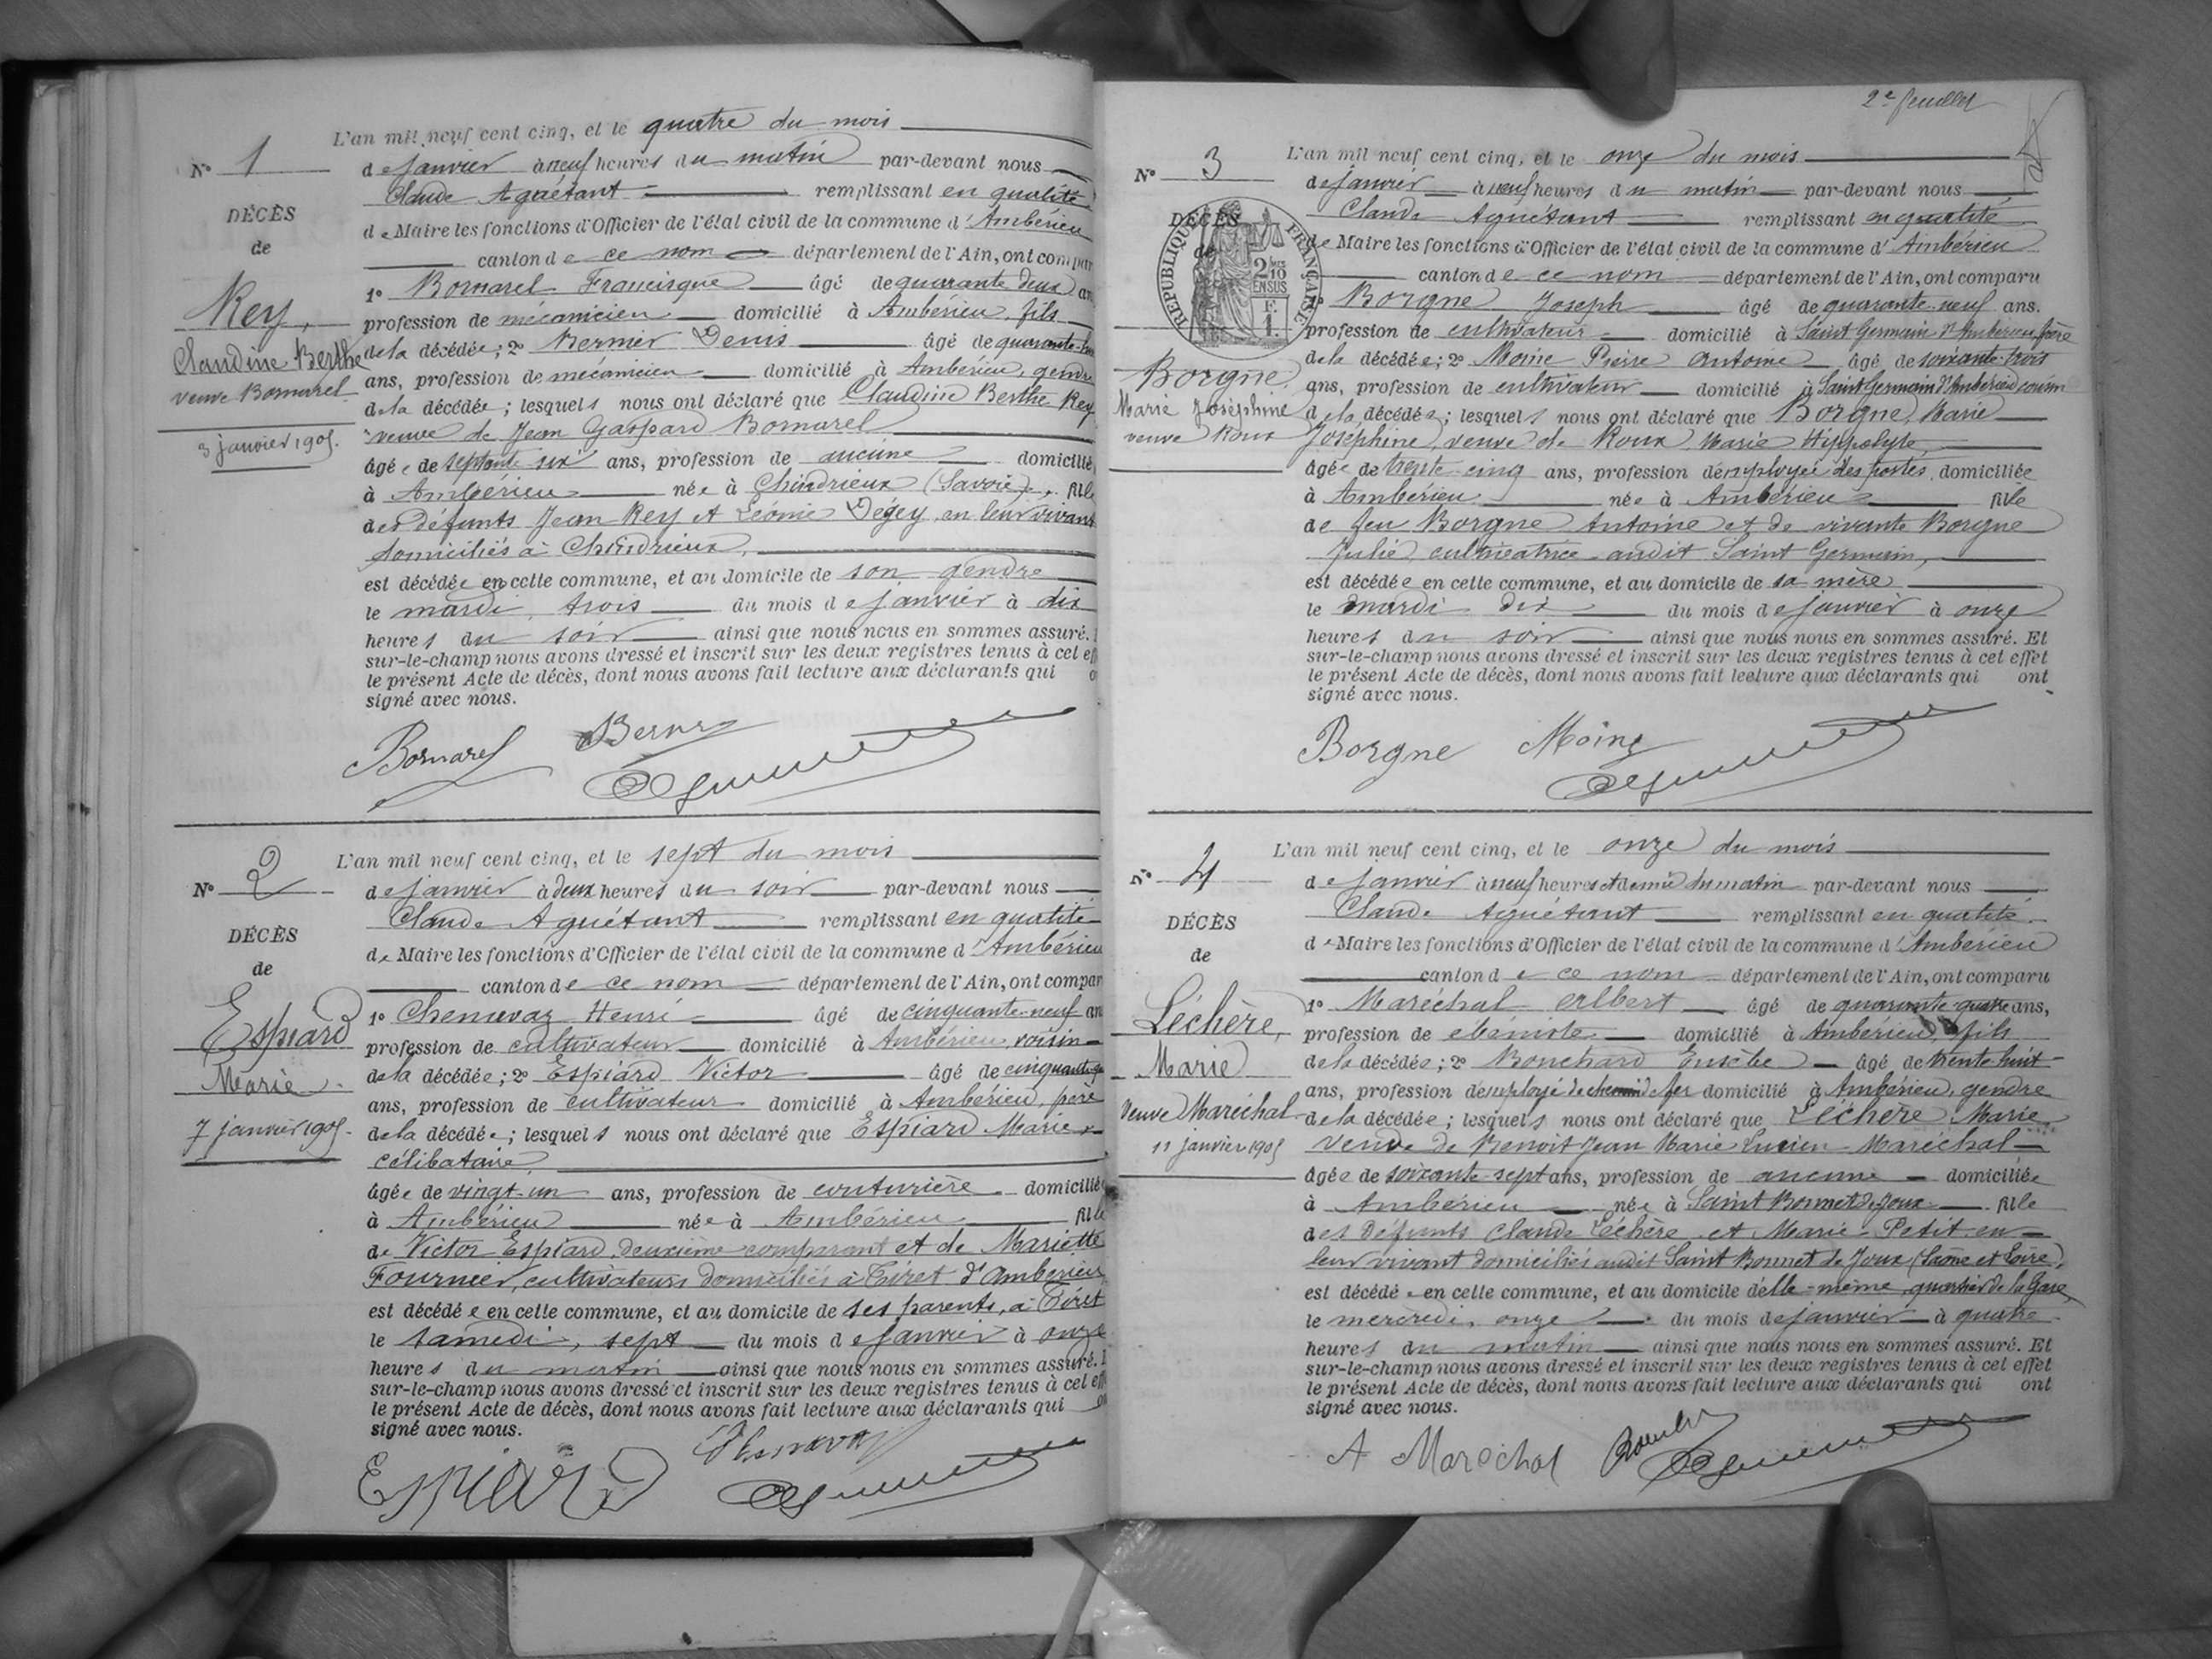 L'an mil neuf cent cinq, et le quatre du mois
N° 1
de janvier à neuf heures du matin par-devant nous
Claude Aguétant remplissant en qualité
DÉCÈS
de Maire les fonctions d'Officier de l'état civil de la commune d'Ambérieu
de
canton de ce nom département de l'Ain, ont compar
1° Bornarel Francisque âgé de quarante deux an
Rey,
profession de mécanicien domicilié à Ambérieu, fils
Claudine Berthe
de la décédée; 2° Bernier Denis âgé de quarante
veuve Bornarel
ans, profession de mécanicien domicilié à Ambérieu, gendre
de la décédée; lesquels nous ont déclaré que Claudine Berthe Rey
3 janvier 1905.
veuve de Jean Gaspard Bornarel
âgée de septante six ans, profession de aucune domiciliée
à Ambérieu née à Chindrieux (Savoie), fille
des défunts Jean Rey et Léonie Dégey, en leur vivant
domiciliés à Chindrieux,
est décédée en cette commune, et au domicile de son gendre
le mardi, trois du mois de janvier à dix
heures du soir ainsi que nous nous en sommes assuré.
sur-le-champ nous avons dressé et inscrit sur les deux registres tenus à cet ef
le présent Acte de décès, dont nous avons fait lecture aux déclarants qui o
signé avec nous.
Bornarel
L'an mil neuf cent cinq, et le sept du mois
N° 2
de janvier à deux heures du soir par-devant nous
Claude Aguétant remplissant en qualité
DÉCÈS
de Maire les fonctions d'Officier de l'état civil de la commune d'Ambérieu
de
canton de ce nom département de l'Ain, ont compar
Espiard
1° Chenavaz Henri âgé de cinquante-neuf an
profession de cultivateur domicilié à Ambérieu, voisin
Marie
de la décédée; 2° Espiard Victor âgé de
ans, profession de cultivateur domicilié à Ambérieu, père
7 janvier 1905.
de la décédée; lesquels nous ont déclaré que Espiard Marie
célibataire,
âgée de vingt-un ans, profession de couturière domiciliée
à Ambérieu née à Ambérieu fille
de Victor Espiard, deuxième comparant et de Mariette
Fournier, cultivateurs domiciliés à Tiret d'Ambérieu
est décédée en cette commune, et au domicile de ses parents, à Tiret
le samedi, sept du mois de janvier à onze
heures du matin ainsi que nous nous en sommes assuré.
sur-le-champ nous avons dressé et inscrit sur les deux registres tenus à cet eff
le présent Acte de décès, dont nous avons fait lecture aux déclarants qui
signé avec nous.
Espiard
2e feuillet
L'an mil neuf cent cinq, et le onze du mois
N° 3
de janvier à neuf heures du matin par-devant nous
Claude Aguétant remplissant en qualité
DÉCÈS
de
RÉPUBLIQUE FRANÇAISE
2 10
EN SUS
de Maire les fonctions d'Officier de l'état civil de la commune d'Ambérieu
canton de ce nom département de l'Ain, ont comparu
1° Borgne Joseph âgé de quarante-neuf ans.
profession de cultivateur domicilié à Saint Germain d'Ambérieu, frère
de la décédée; 2° Moine Pierre Antoine âgé de soixante-trois
Borgne
ans, profession de cultivateur domicilié à Saint Germain d'Ambérieu cousin
Marie Joséphine
de la décédée; lesquels nous ont déclaré que Borgne, Marie
veuve Roux
Joséphine, veuve de Roux, Marie Hippolyte,
âgée de trente-cinq ans, profession d'employée des postes domiciliée
à Ambérieu née à Ambérieu fille
de feu Borgne Antoine et de vivante Borgne
Julie, cultivatrice audit Saint Germain,
est décédée en cette commune, et au domicile de sa mère
le mardi dix du mois de janvier à onze
heures du soir ainsi que nous nous en sommes assuré. Et
sur-le-champ nous avons dressé et inscrit sur les deux registres tenus à cet effet
le présent Acte de décès, dont nous avons fait lecture aux déclarants qui ont
signé avec nous.
Borgne Moine
L'an mil neuf cent cinq, et le onze du mois
N° 4
de janvier à neuf heures et demie du matin par-devant nous
Claude Aguétant remplissant en qualité
DÉCÈS
de Maire les fonctions d'Officier de l'état civil de la commune d'Ambérieu
de
canton de ce nom département de l'Ain, ont comparu
Léchère,
1° Maréchal Albert âgé de quarante-quatre ans,
profession de ébéniste domicilié à Ambérieu, fils
Marie
de la décédée; 2° Bouchard Eusèbe âgé de trente-huit
ans, profession d'employé de chemin de fer domicilié à Ambérieu, gendre
veuve Maréchal
de la décédée; lesquels nous ont déclaré que Léchère Marie
11 janvier 1905
veuve de Benoit Jean Marie Lucien Maréchal
âgée de soixante-sept ans, profession de aucune domiciliée
à Ambérieu née à Saint Bonnet de Joux fille
des défunts Claude Léchère et Marie Petit en
leur vivant domiciliés audit Saint Bonnet de Joux (Saône et Loire),
est décédée en cette commune, et au domicile d'elle-même, quartier de la Gare,
le mercredi, onze du mois de janvier à quatre
heures du matin ainsi que nous nous en sommes assuré. Et
sur-le-champ nous avons dressé et inscrit sur les deux registres tenus à cet effet
le présent Acte de décès, dont nous avons fait lecture aux déclarants qui ont
signé avec nous.
A Marechal